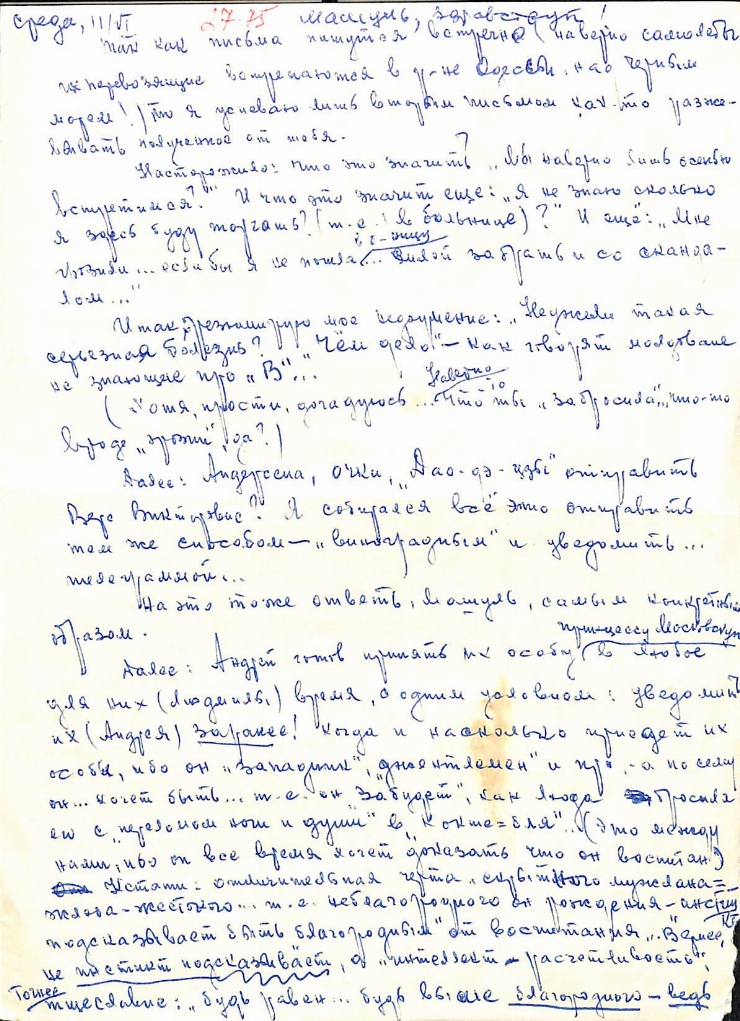 среда, 11/VI 27.75 Машуль, здравствуй!
Так как письма пишутся встречно (наверно самолёты
их перевозящие встречаются в р-не Одессы, над Чёрным
морем!) то я успеваю лишь вторым письмом как-то разже-
вывать полученное от тебя.
Насторожило: что это значит „Мы наверно лишь осенью
встретимся?" И что это значит ещё: „Я не знаю сколько
я здесь буду торчать? (т.е. в больнице)?" И ещё: „Мне
грозили... если бы я не пошла в б-ницу... силой забрать и со сканда-
лом..."
Итак, резюмирую моё недоумение: „Неужели такая
серьезная болезнь? „Чём дело" – как говорят молдоване
не знающие про „В"...
(Хотя, прости, догадуюсь... Наверно что-то ты „забросила", что-то
вроде да?)
Далее: Андерсена, очки, „Дао-дэ-цзы" отправить
Вере Викторовне? Я собирался всё это отправить
тем же способом – „виноградным" и уведомить...
телеграммой...
На это тоже ответь, Машуль, самым конкретным
образом.
Далее: Андрей готов принять их особу, принцессу Московскую в любое
для них (Людмилы) время, с одним условием: уведомить
их (Андрея) заранее! Когда и насколько приедет их
особа, ибо он „западник", „джентлемен" и пр, – а по сему
он... хочет быть... т.е. он „забудет", как Люда бросила
его с „переломом ноги и души" в „Кокте=бля"... (Это между
нами, ибо он все время хочет доказать что он воспитан)
Кстати: отличительная черта „скрытного мужлана=
жлоба-жестокого... т.е. неблагородного он рождения – инстинкт
подсказывает быть благородным" от воспитания... Вернее,
не инстинкт подсказывает, а „интеллект – расчетливость",
Точнее тщеславие: „будь равен... будь выше благородного – ведь